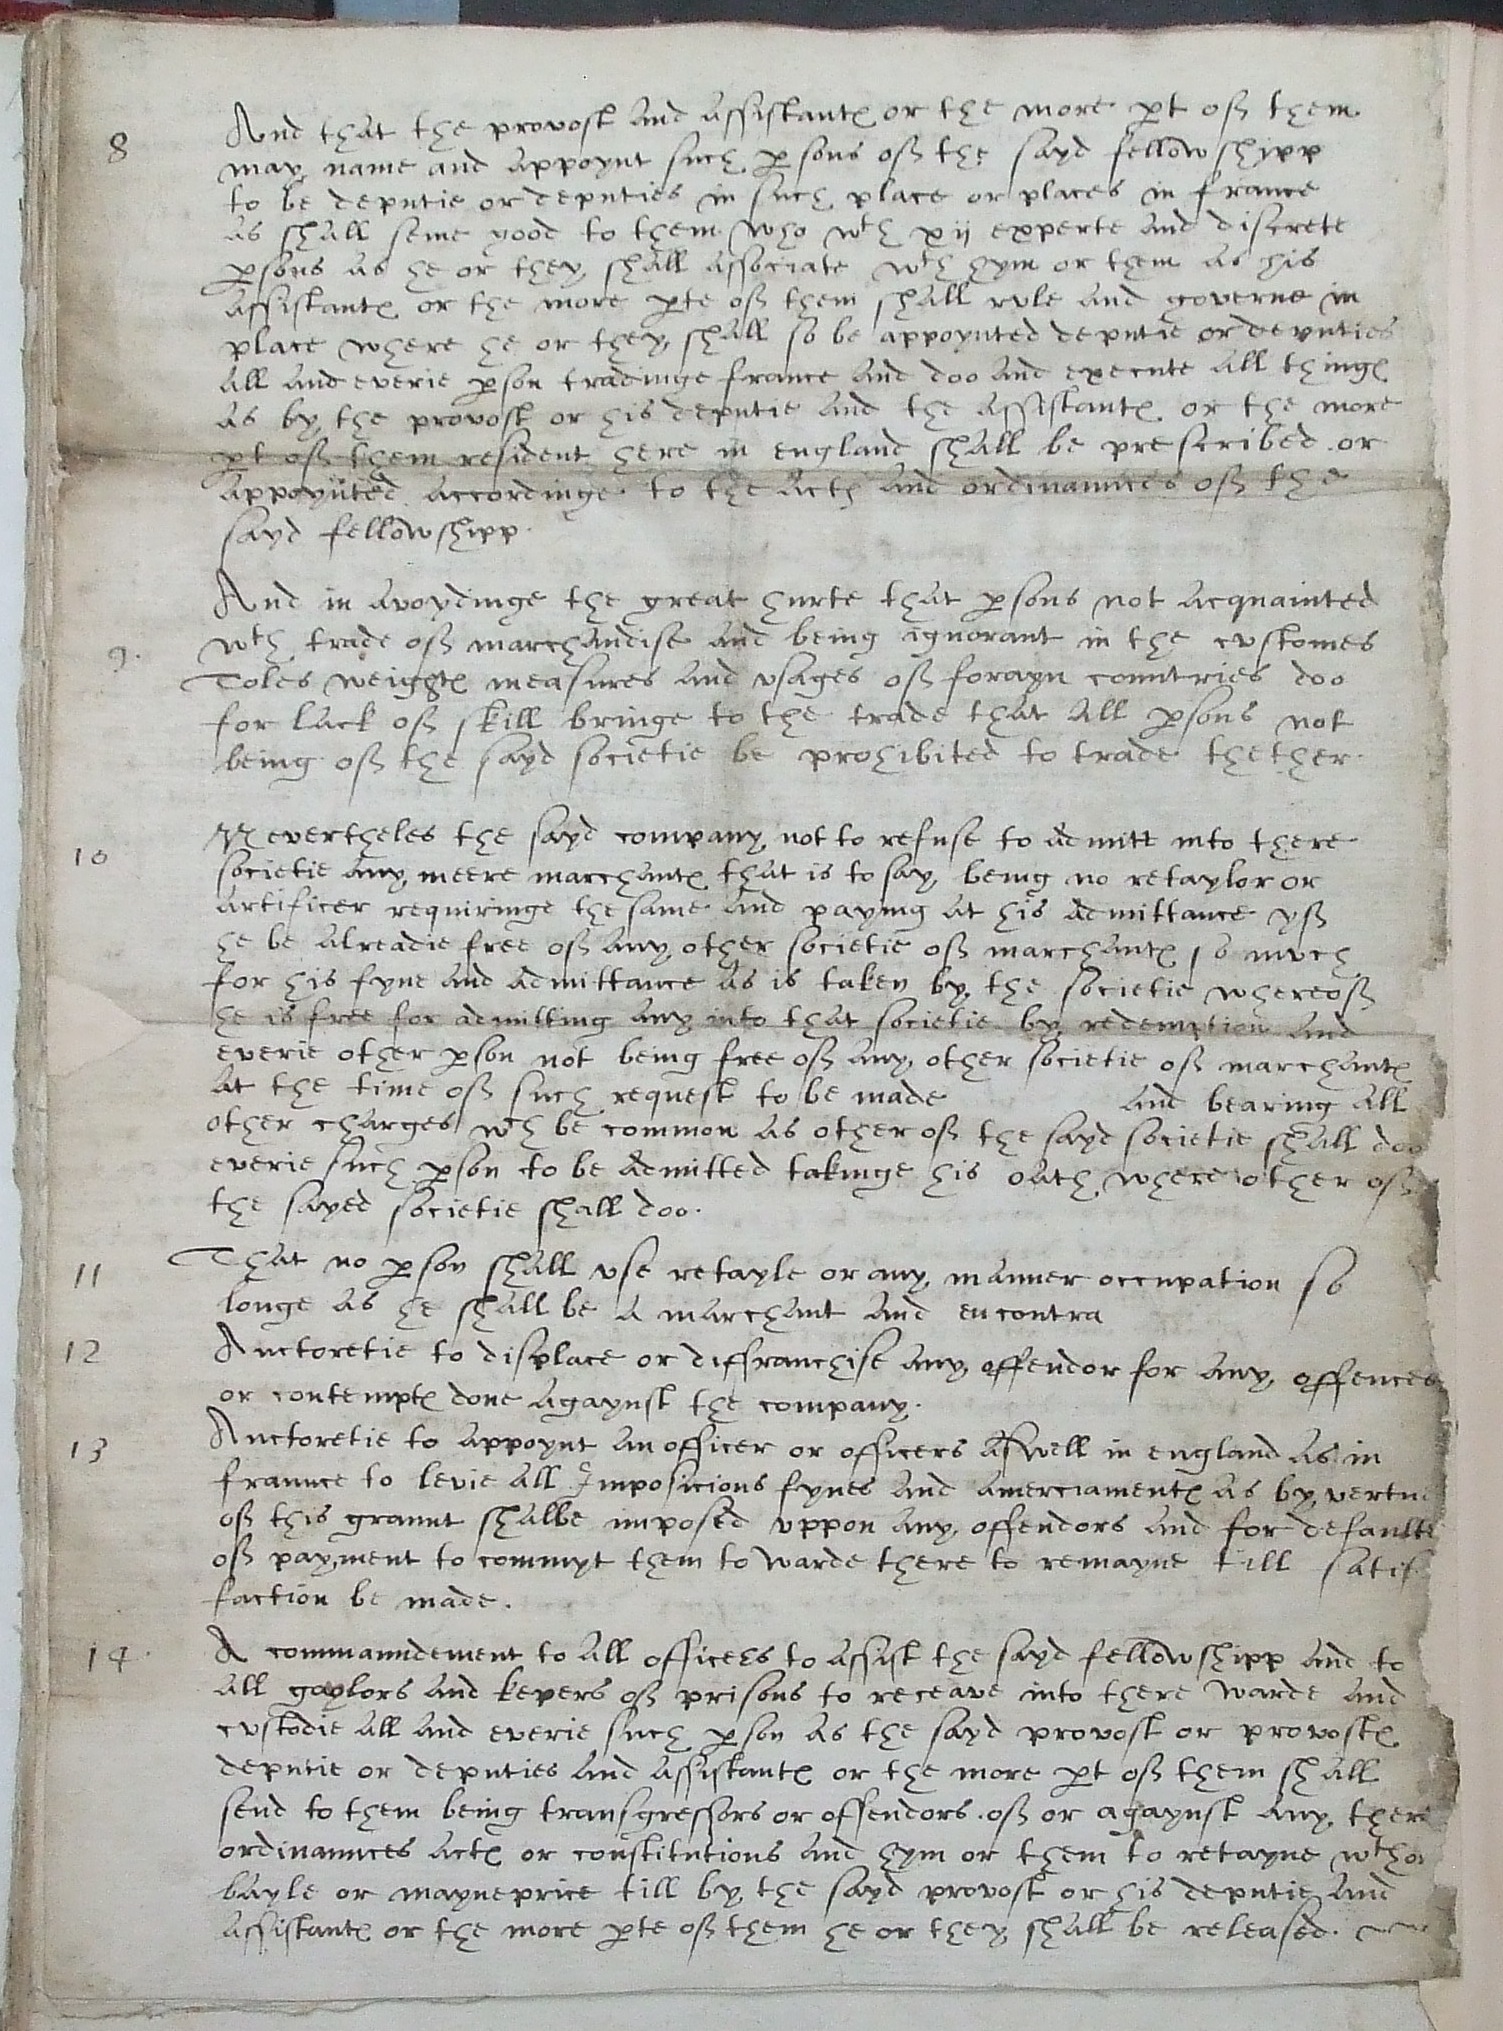 8 And that the provost and assistantes or the more pt off them
may name and appoynt such psons off the sayd fellowshipp
to be deputie or deputies in such place or places in france
as shall seme good to them who wth xij experte and discrete
psons as he or they shall associate wth hym or them as his
assistantes or the more pte off them shall rule and governe in
place where he or they shall so be appoynted deputie or deputies
all and everie pson tradinge france and doo and execute all thinges
as by the provost or his deputie and the assistantes or the more
pt off them resident here in england shall be prescribed or
appoynted accordinge to the actes and ordinannces off the
sayd fellowshipp.
And in avoydinge the great hurte that psons not acquainted
9. wth trade off marchandise and being ignorant in the customes
Toles weightes measures and usages off forayn countries doo
for lack off skill bringe to the trade that all psons not
being off the sayd societie be prohibited to trade thether.
10 Nevertheles the sayd company not to refuse to admitt into there
societie any meere marchantes that is to say being no retaylor or
artificer requiringe the same and paying at his admittance yff
he be alreadie free off any other societie off marchantes so much
for his fyne and admittance as is taken by the societie whereoff
he is free for admitting any into that societie by redemption and
everie other pson not being free off any other societie off marchantes
at the time off such request to be made and bearing all
other charges wch be common as other off the sayd societie shall doo
everie such pson to be admitted takinge his oath where other off
the sayed societie shall doo.
11 That no pson shall use retayle or any manner occupation so
longe as he shall be a marchant and encontra
12 Auctoretie to displace or disfranchise any offendor for any offences
or contemptes done agaynst the company.
13 Auctoretie to appoynt an officer or officers aswell in england as in
fraunce to levie all Imposicions fynes and amerciamentes as by vertue
off this graunt shalbe imposed uppon any offendors and for defaulte
off payment to commyt them to warde there to remayne till satis
faction be made.
14. A commaundement to all officers to assist the sayd fellowshipp and to
all gaylors and kepers off prisons to receave into there warde and
custodie all and everie such pson as the sayd provost or provostes
deputie or deputies and assistantes or the more pt off them shall
send to them being transgressors or offendors. off or agaynst any there
ordinannces actes or constitutions and hym or them to retayne wtho
bayle or mayneprice till by the sayd provost or his deputie and
assistantes or the more pte off them he or they shall be released.